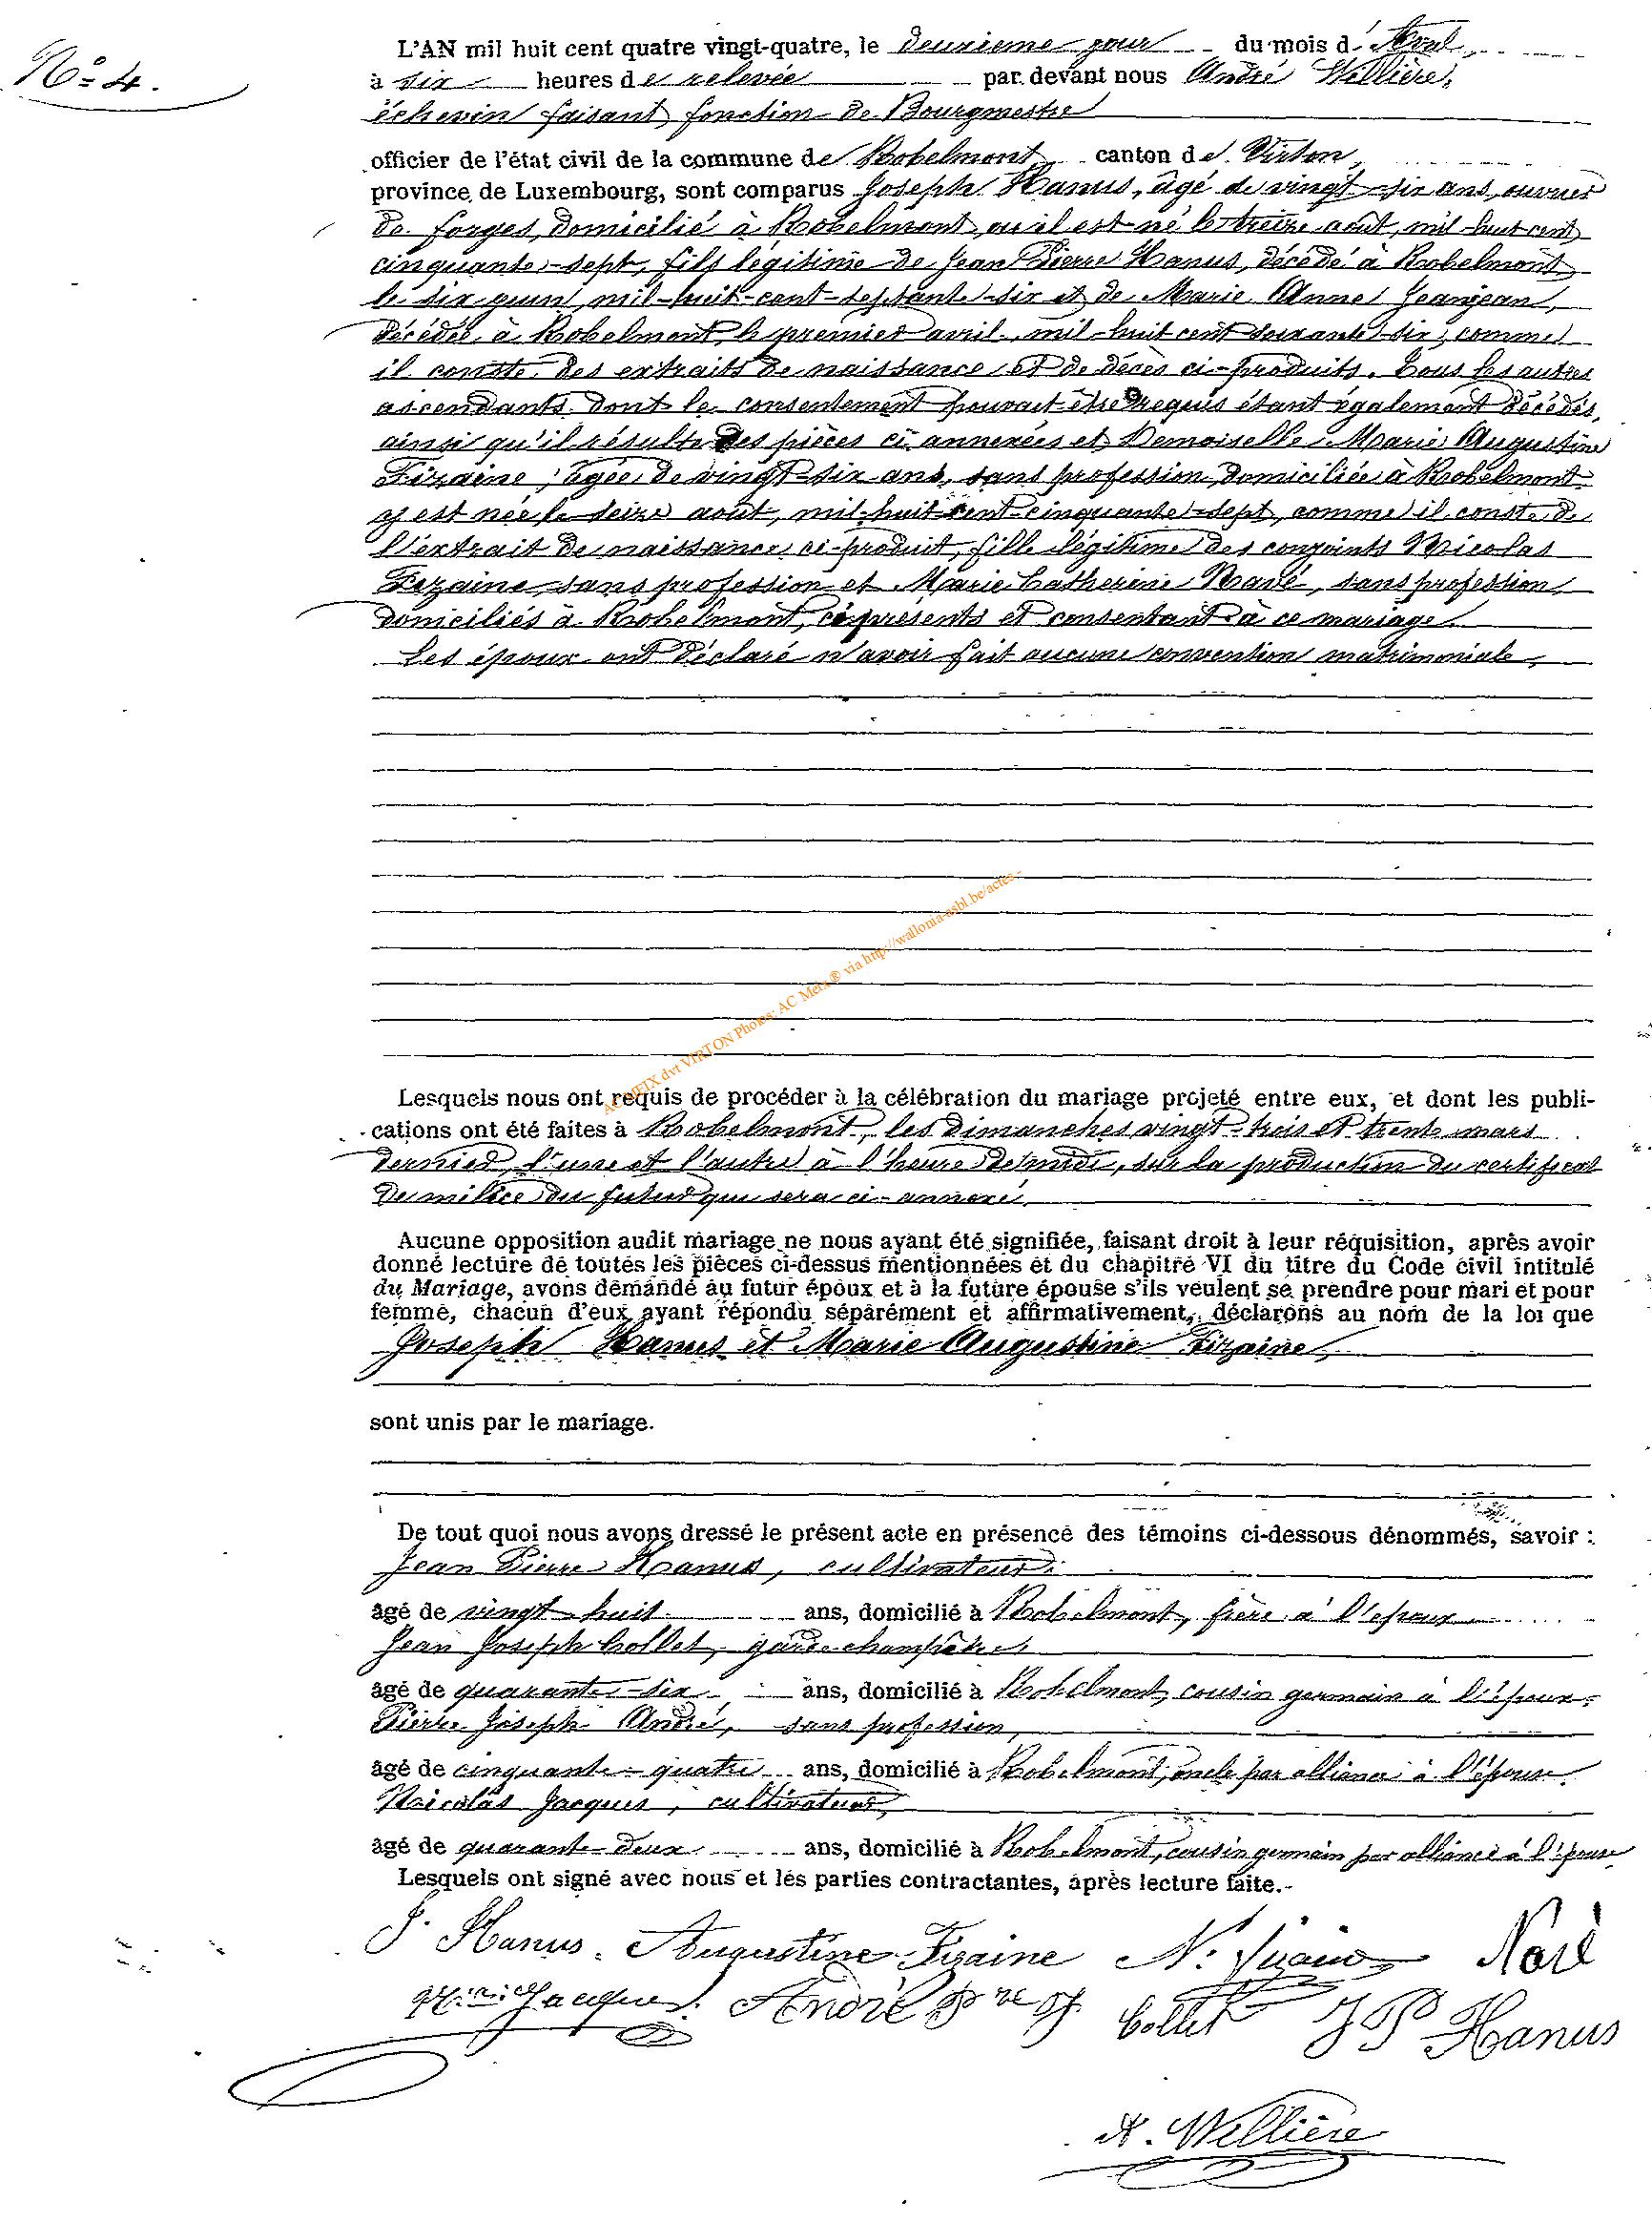 N° 4.
L'AN mil huit cent quatre vingt-quatre, le deuxième jour du mois d'Avril,
à six heures de relevée par devant nous André Wellière,
échevin faisant fonction de Bourgmestre
officier de l'état civil de la commune de Robelmont, canton de Virton,
province de Luxembourg, sont comparus Joseph Hanus, âgé de vingt-six ans, ouvrier
de forges, domicilié à Robelmont, où il est né le treize août, mil huit cent
cinquante-sept, fils légitime de Jean Pierre Hanus, décédé à Robelmont
le six juin, mil-huit-cent-septante-six et de Marie Anne Jeanjean,
décédée à Robelmont, le premier avril, mil-huit cent soixante-six, comme
il conste des extraits de naissance et de décès ci-produits. Tous les autres
ascendants dont le consentement pouvait être requis étant également décédés,
ainsi qu'il résulte des pièces ci-annexées et Demoiselle Marie Augustine
Fizaine, âgée de vingt-six ans, sans profession, domiciliée à Robelmont
y est née le seize août, mil-huit-cent-cinquante-sept, comme il conste de
l'extrait de naissance ci-produit, fille légitime des conjoints Nicolas
Fizaine, sans profession et Marie Catherine Naré, sans profession,
domiciliés à Robelmont, ci-présents et consentant à ce mariage.
Les époux ont déclaré n'avoir fait aucune convention matrimoniale.
AC MEIX dvt VIRTON Photos: AC Meix ® via http://wallonia-asbl.be/actes -
Lesquels nous ont requis de procéder à la célébration du mariage projeté entre eux, et dont les publi-
cations ont été faites à Robelmont, les dimanches vingt-trois et trente mars
dernier, l'une et l'autre à l'heure de midi, sur la production du certificat
de milice du futur qui sera ci-annexé.
Aucune opposition audit mariage ne nous ayant été signifiée, faisant droit à leur réquisition, après avoir
donné lecture de toutes les pièces ci-dessus mentionnées et du chapitre VI du titre du Code civil intitulé
du Mariage, avons demandé au futur époux et à la future épouse s'ils veulent se prendre pour mari et pour
femme, chacun d'eux ayant répondu séparément et affirmativement, déclarons au nom de la loi que
Joseph Hanus et Marie Augustine Fizaine,
sont unis par le mariage.
De tout quoi nous avons dressé le présent acte en présence des témoins ci-dessous dénommés, savoir :
Jean Pierre Hanus, cultivateur,
âgé de vingt-huit ans, domicilié à Robelmont, frère à l'époux
Jean Joseph Collet, garde-champêtre
âgé de quarante-six ans, domicilié à Robelmont, cousin germain à l'époux.
Pierre Joseph André, sans profession,
âgé de cinquante-quatre ans, domicilié à Robelmont, oncle par alliance à l'épouse.
Nicolas Jacques, cultivateur,
âgé de quarante-deux ans, domicilié à Robelmont, cousin germain par alliance à l'épouse
Lesquels ont signé avec nous et les parties contractantes, après lecture faite.-
J. Hanus. Augustine Fizaine N. Fizaine Naré
Jacques. André Pre J. Collet J P Hanus
A. Wellière